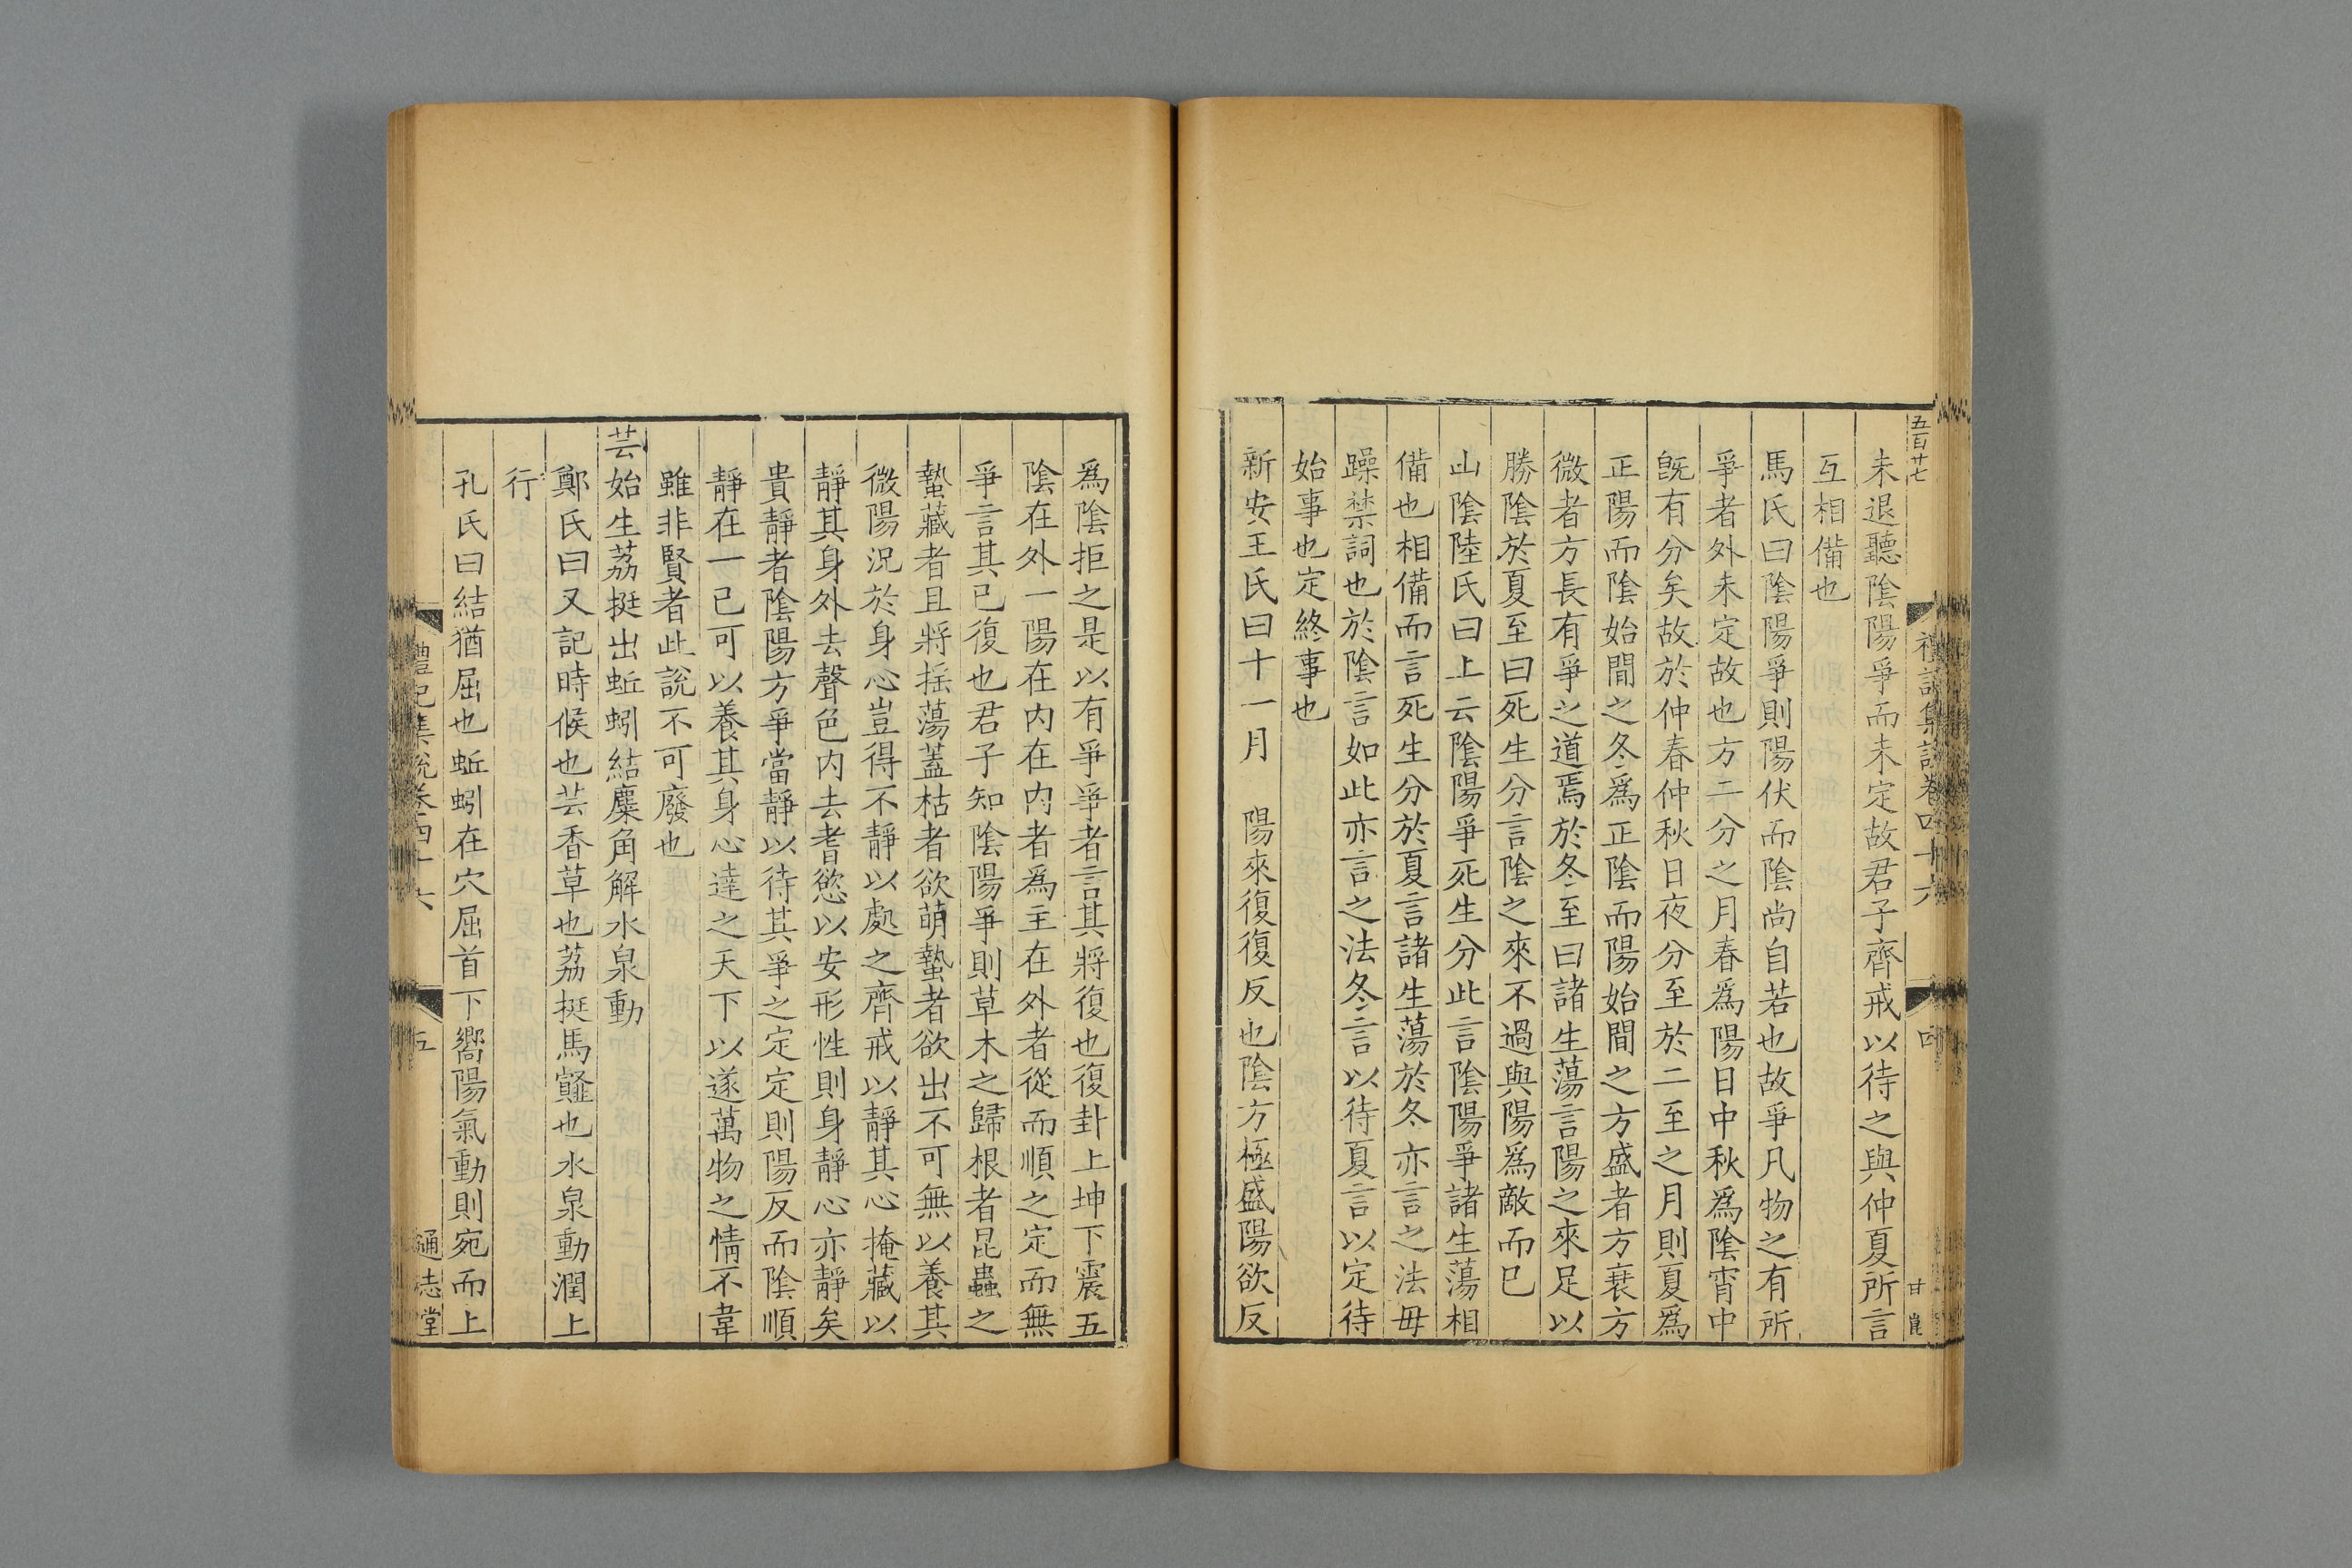 五百廿七
未退聽陰陽爭而未定故君子齊戒以待之與仲夏所言
互相備也
馬氏曰陰陽爭則陽伏而陰尚自若也故爭凡物之有所
爭者外未定故也方二分之月春爲陽日中秋爲陰宵中
旣有分矣故於仲春仲秋日夜分至於二至之月則夏爲
正陽而陰始間之冬爲正陰而陽始間之方盛者方衰方
微者方長有爭之道焉於冬至曰諸生蕩言陽之來足以
勝陰於夏至曰死生分言陰之來不過與陽爲敵而已
山陰陸氏曰上云陰陽爭死生分此言陰陽爭諸生蕩相
備也相備而言死生分於夏言諸生蕩於冬亦言之法毋
躁禁詞也於陰言如此亦言之法冬言以待夏言以定待
始事也定終事也
新安王氏曰十一月　陽來復復反也陰方極盛陽欲反
爲陰拒之是以有爭爭者言其將復也復卦上坤下震五
陰在外一陽在内在内者爲主在外者從而順之定而無
爭言其已復也君子知陰陽爭則草木之歸根者昆蟲之
蟄藏者且將摇蕩蓋枯者欲萌蟄者欲出不可無以養其
微陽況於身心豈得不靜以處之齊戒以靜其心掩藏以
靜其身外去聲色内去耆慾以安形性則身靜心亦靜矣
貴靜者陰陽方爭當靜以待其爭之定定則陽反而陰順
靜在一已可以養其身心達之天下以遂萬物之情不韋
雖非賢者此說不可廢也
芸始生荔挺出蚯蚓結麋角解水泉動
鄭氏曰又記時候也芸香草也荔挺馬䪥也水泉動潤上
行
孔氏曰結猶屈也蚯蚓在穴屈首下嚮陽氣動則宛而上
禮記集說卷四十六
五
通志堂